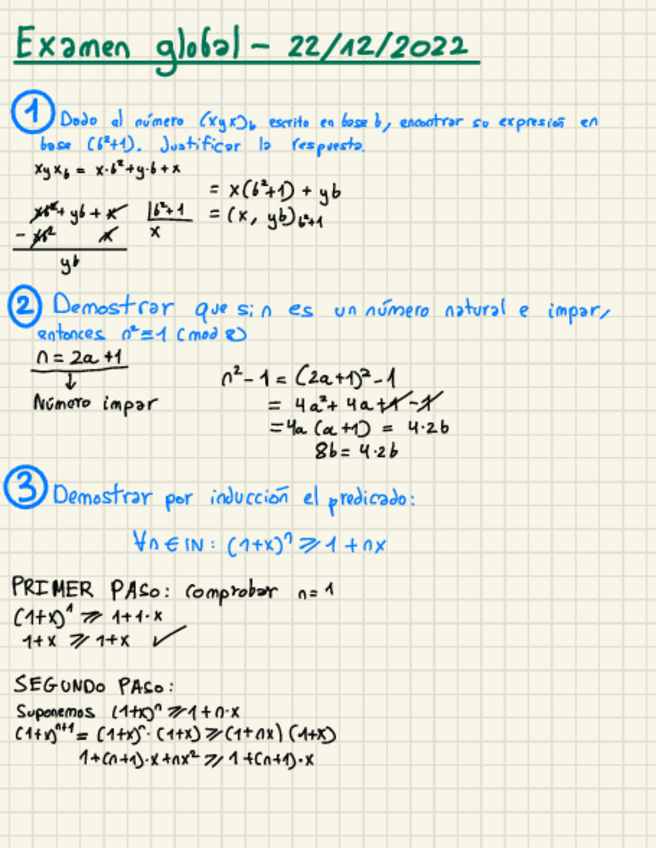 Examen global - 22/12/2022
1 Dado el número (xyx)b escrito en base b, encontrar su expresión en
base (b²+1). Justificar la respuesta.
xyx_b = x·b²+y·b+x
= x(b²+1) + yb
= (x, yb)_b²+1
xb² + yb + x |b²+1
- xb² x x
yb
2 Demostrar que si n es un número natural e impar,
entonces n²≡1 (mod 8)
n = 2a+1
↓
Número impar
n²-1 = (2a+1)²-1
= 4a²+4a+1-1
=4a(a+1) = 4·2b
8b = 4·2b
3 Demostrar por inducción el predicado:
∀n∈IN: (1+x)ⁿ ≥ 1+nx
PRIMER PASO: comprobar n=1
(1+x)¹ ≥ 1+1·x
1+x ≥ 1+x ✓
SEGUNDO PASO:
Suponemos (1+x)ⁿ ≥ 1+n·x
(1+x)ⁿ⁺¹ = (1+x)ⁿ·(1+x) ≥ (1+nx)(1+x)
1+(n+1)·x+nx² ≥ 1+(n+1)·x